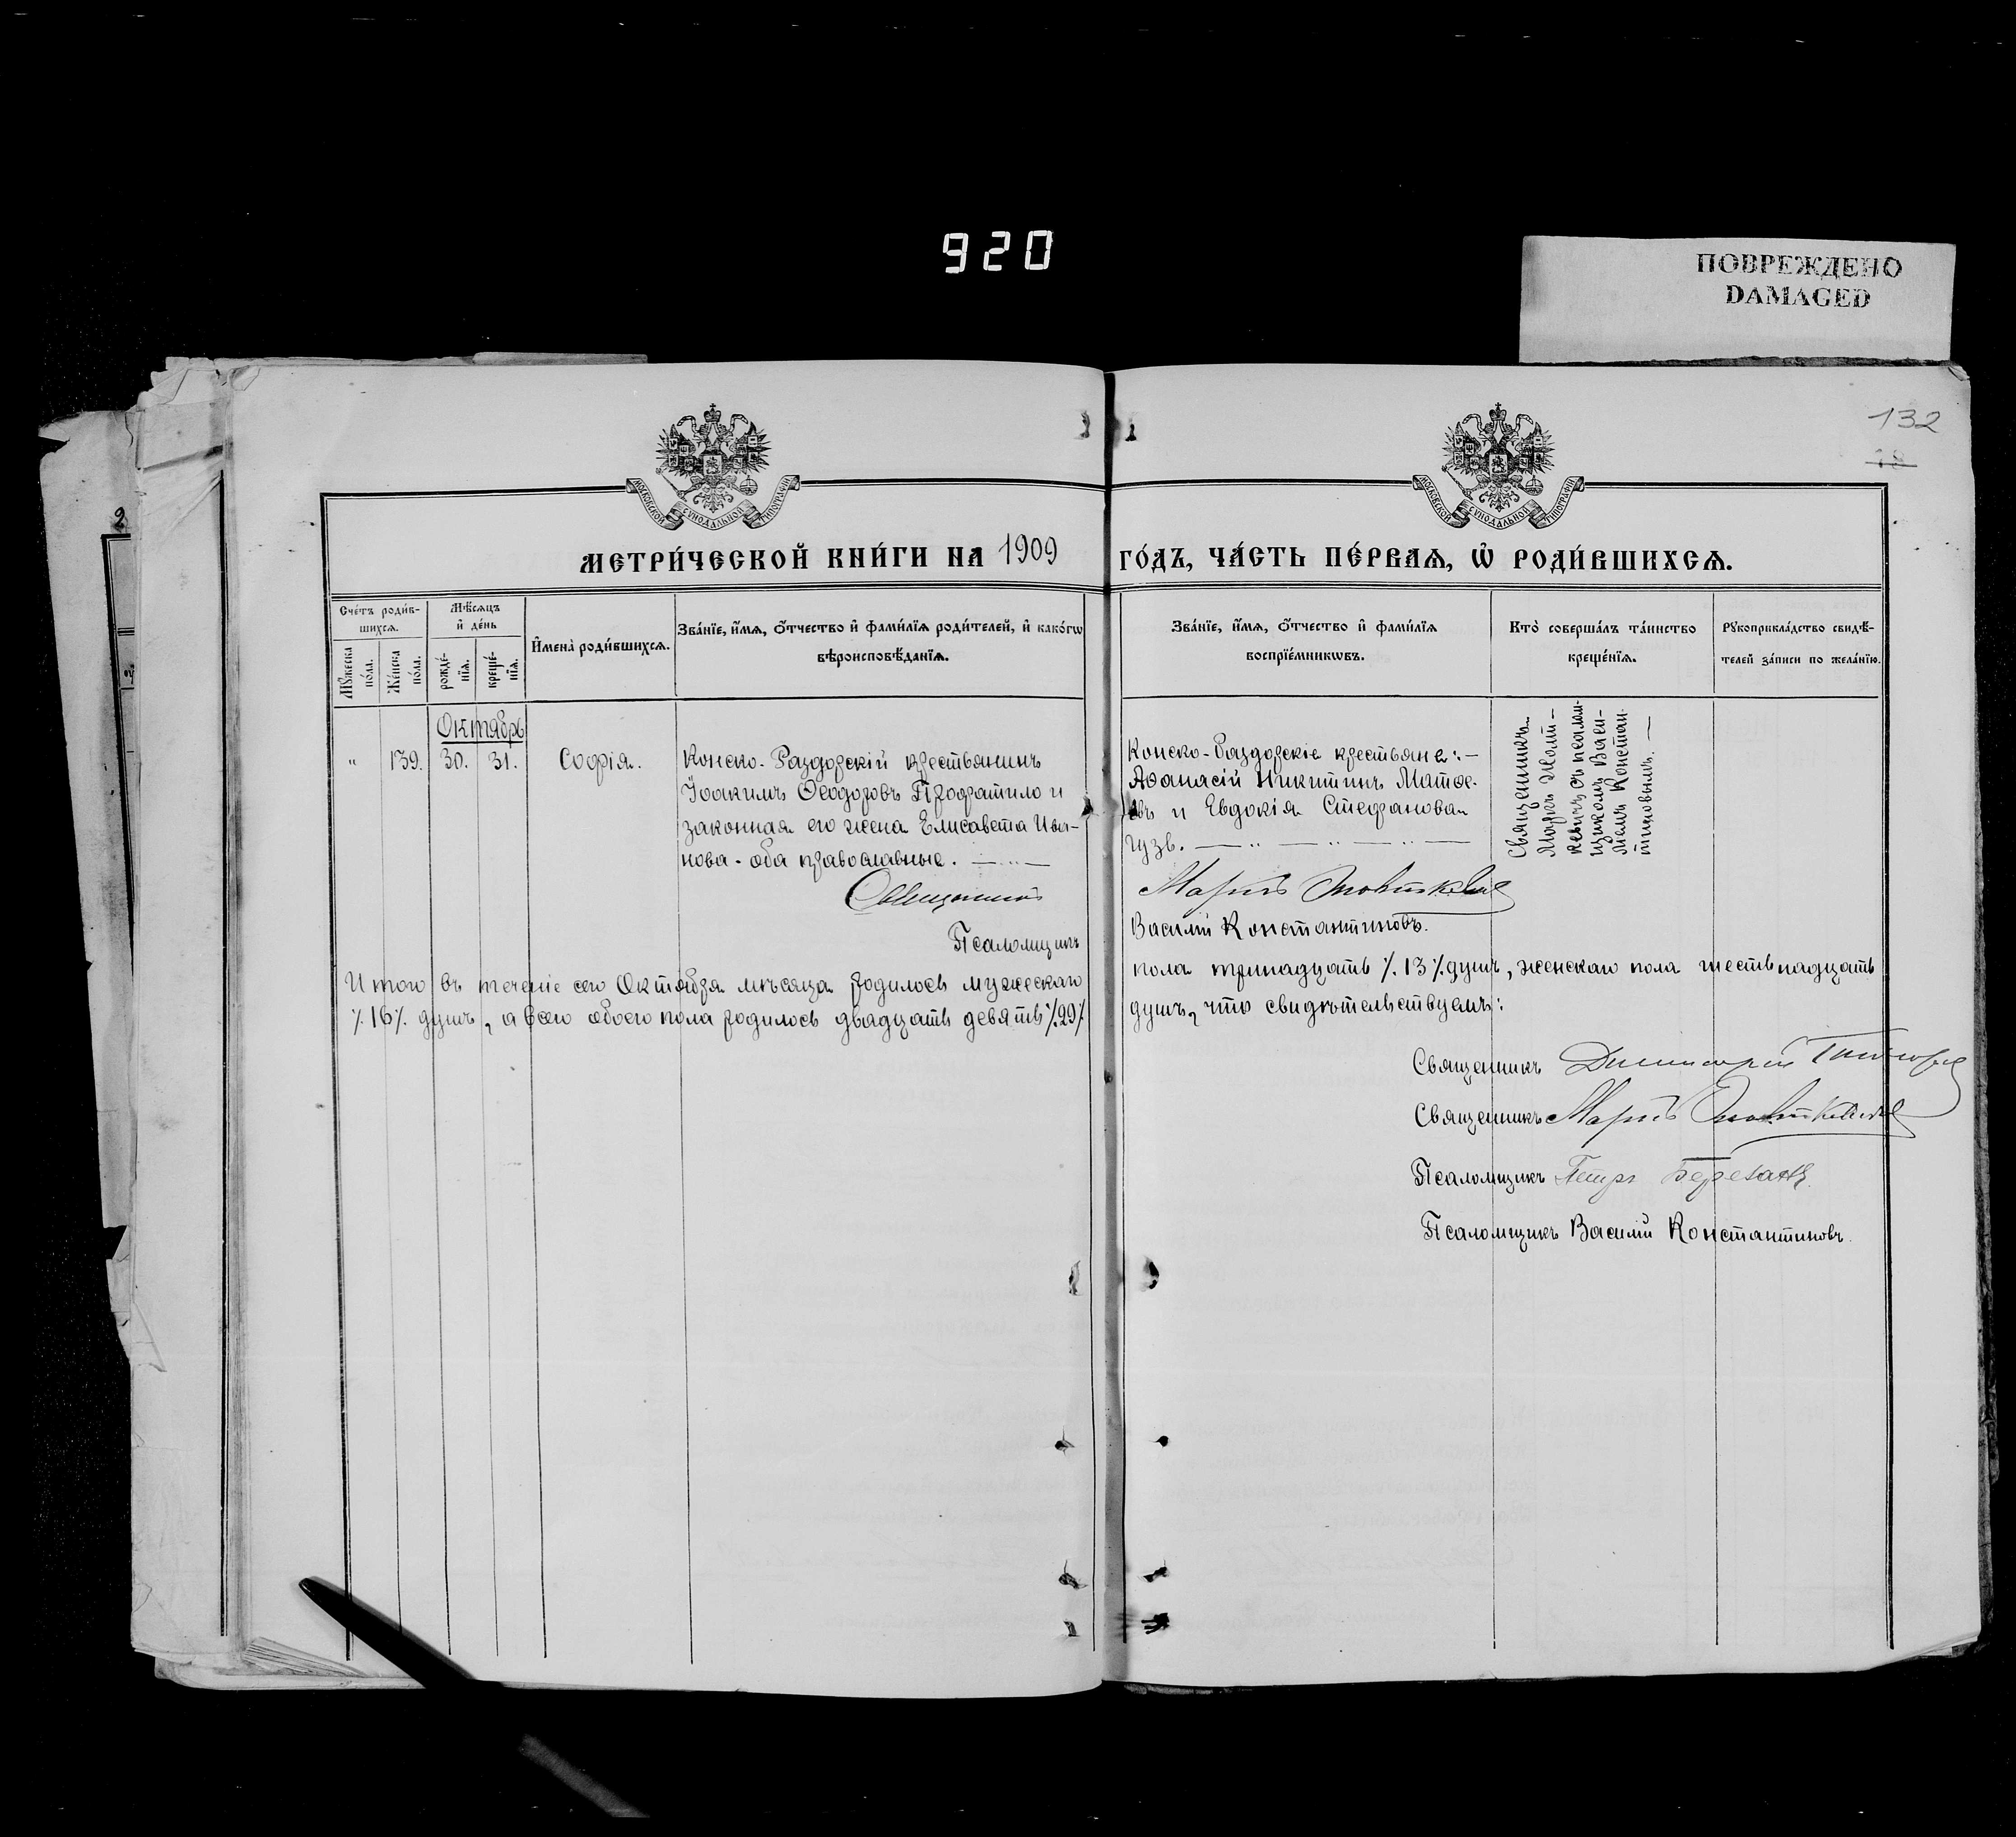 920
ПОВРЕЖДЕНО
DAMAGED
132
18
МОСКОВСКОЙ СѴНОДАЛЬНОЙ ТИПОГРАФІИ
МОСКОВСКОЙ СѴНОДАЛЬНОЙ ТИПОГРАФІИ
МЕТРИ́ЧЕСКОЙ КНИ́ГИ НА 1909 ГО́ДЪ, ЧА́СТЬ ПЕ́РВАѦ, Ѽ РОДИ́ВШИХСѦ.
Сче́тъ роди́в-
шихсѧ.
Мꙋ́жеска по́ла.
Же́нска по́ла.
Мѣ́сѧцъ
и҆ де́нь
рожде́-
нїѧ.
креще́-
нїѧ.
И҆мена̀ роди́вшихсѧ.
Зва́нїе, и҆́мѧ, ѻ҆́тчество и҆ фами́лїѧ роди́телей, и҆ како́гѡ
вѣроисповѣ́данїѧ.
Зва́нїе, и҆́мѧ, ѻ҆́тчество и҆ фами́лїѧ
воспрїе́мникѡвъ.
Кто̀ соверша́лъ та́инство
креще́нїѧ.
Рꙋкоприкла́дство свидѣ́-
телей за́писи по жела́нїю.
Октябрь
" 139. 30. 31. Софія.
Конско-Раздорскій крестьянинъ
Іоакимъ Ѳеодоровъ Профатило и
законная его жена Елисавета Ива-
нова - оба православные.
Священникъ
Псаломщикъ
Конско-Раздорскіе крестьяне:-
Аѳанасій Никитинъ Матѳе-
въ и Евдокія Стефанова
Гузь.
Василій Константиновъ.
Священникъ
Маркъ Жолт-
кевичъ съ псалом-
щикомъ Васи-
ліемъ Констан-
тиновымъ.
Итого въ теченіе сего Октября мѣсяца родилось мужескаго пола тринадцать ٪13٪ душъ, женскаго пола шестьнадцать
٪16٪ душъ, а всего обоего пола родилось двадцать девять ٪29٪ душъ, что свидѣтельствуемъ:
Священникъ Димитрій
Священникъ Маркъ
Псаломщикъ Петръ
Псаломщикъ Василій Константиновъ.